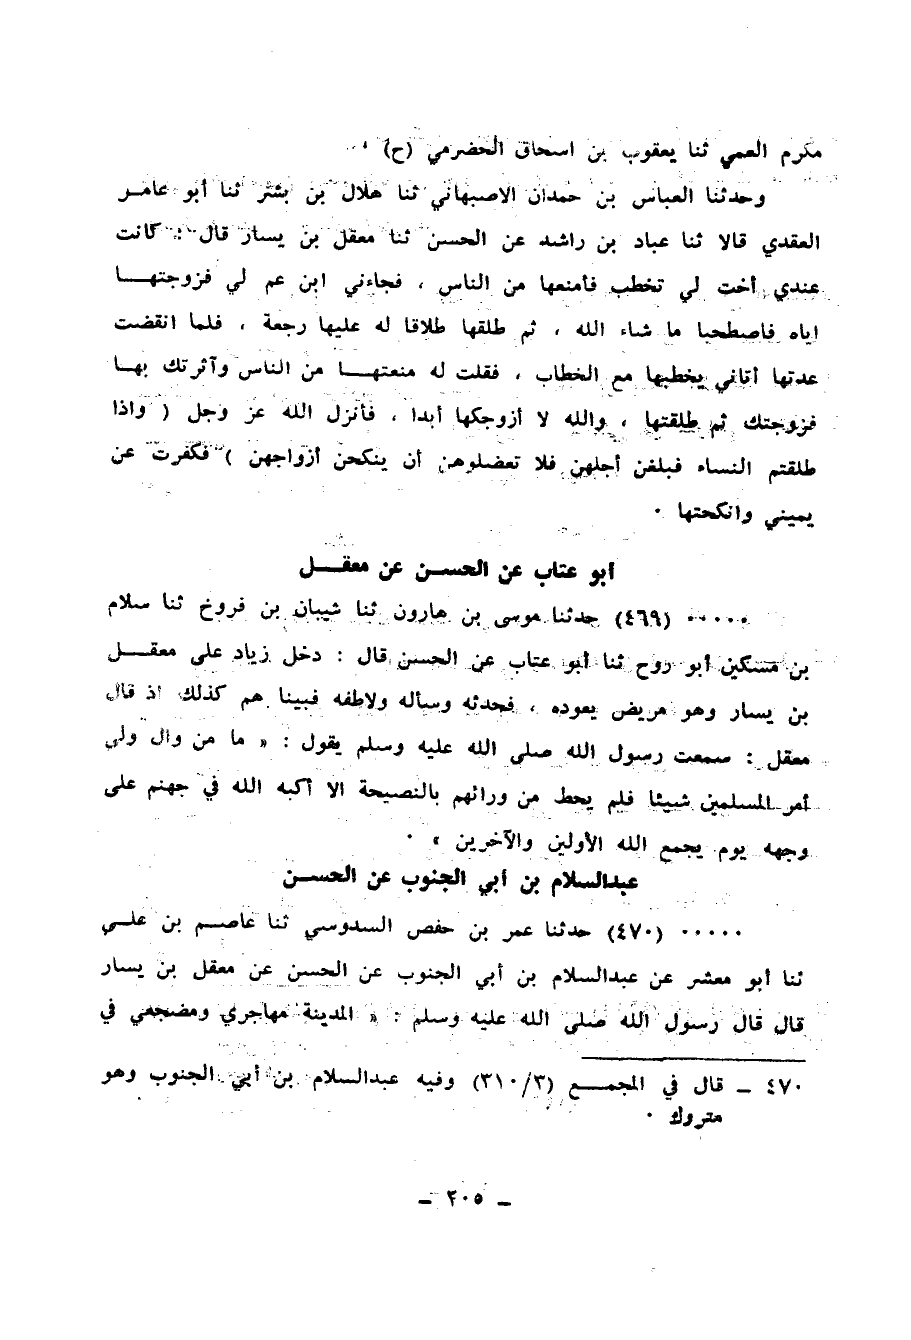 مكرم العمي ثنا يعقوب بن اسحاق الحضرمي (ح) ٠
وحدثنا العباس بن حمدان الاصبهاني ثنا هلال بن بشر ثنا أبو عامر
العقدي قالا ثنا عباد بن راشد عن الحسن ثنا معقل بن يسار قال : كانت
عندي أخت لي تخطب فأمنعها من الناس ، فجاءني ابن عم لي فزوجتهـــا
اياه فاصطحبا ما شاء الله ، ثم طلقها طلاقا له عليها رجعة ، فلما انقضت
عدتها أتاني يخطبها مع الخطاب ، فقلت له منعتهـــا من الناس وآثرتك بهــا
فزوجتك ثم طلقتها ، والله لا أزوجكها أبدا ، فأنزل الله عز وجل ( واذا
طلقتم النساء فبلغن أجلهن فلا تعضلوهن أن ينكحن أزواجهن ) فكفرت عن
يميني وانكحتها ٠
أبو عتاب عن الحســن عن معقــل
٠٠٠٠٠ (٤٦٩) حدثنا موسى بن هارون ثنا شيبان بن فروخ ثنا سلام
بن مسكين أبو روح ثنا أبو عتاب عن الحسن قال : دخل زياد على معقــل
بن يسار وهو مريض يعوده ، فحدثه وسأله ولاطفه فبينا هم كذلك اذ قال
معقل : سمعت رسول الله صلى الله عليه وسلم يقول : « ما من وال ولي
أمر المسلمين شيئا فلم يحط من ورائهم بالنصيحة الا أكبه الله في جهنم على
وجهه يوم يجمع الله الأولين والآخرين » ٠
عبدالسلام بن أبي الجنوب عن الحســن
٠٠٠٠٠ (٤٧٠) حدثنا عمر بن حفص السدوسي ثنا عاصــم بن علــي
ثنا أبو معشر عن عبدالسلام بن أبي الجنوب عن الحسن عن معقل بن يسار
قال قال رسول الله صلى الله عليه وسلم : « المدينة مهاجري ومضجعي في
٤٧٠ ـ قال في المجمــع (٣/٣١٠) وفيه عبدالسلام بن أبي الجنوب وهو
متروك ٠
ـ ٢٠٥ ـ